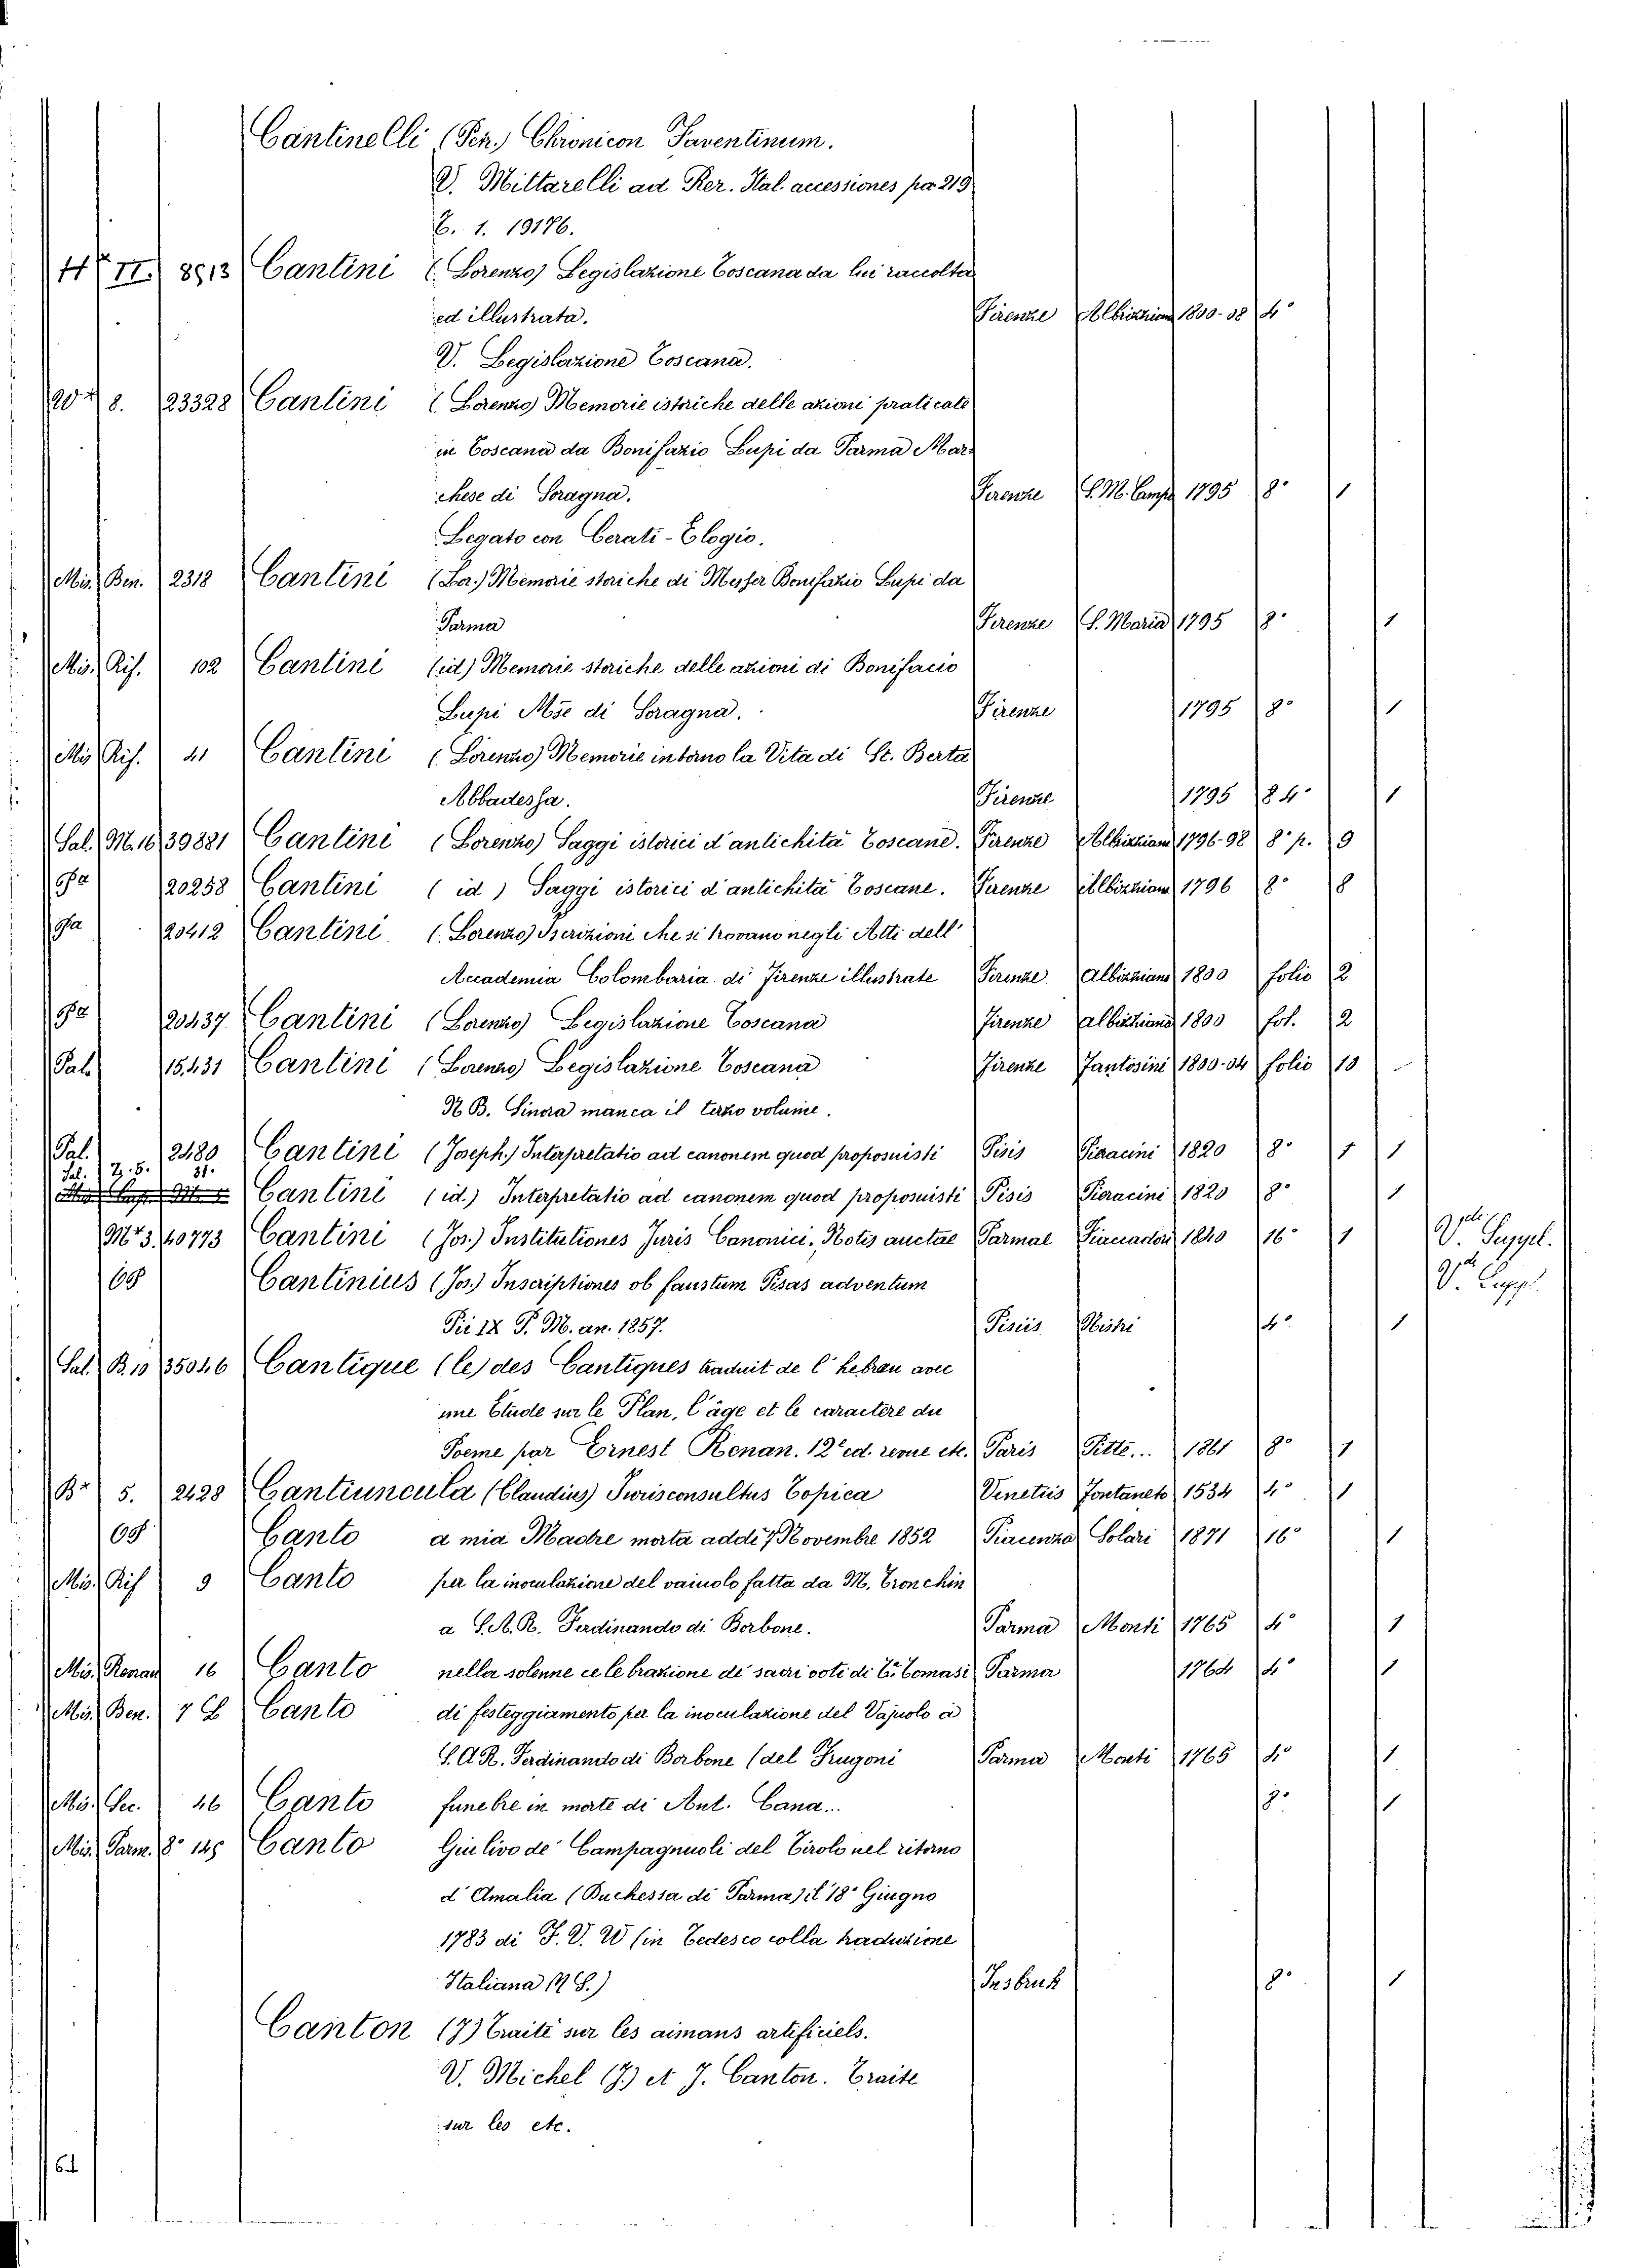 Cantinelli (Petr.) Chronicon Faventinum.
V. Mittarelli ad Rer. Ital. accessiones pa. 219
E. 1. 19176.
H II. 8513 Cantini (Lorenzo) Legislazione Toscana da lui raccolta
ed illustrata. Firenze Albizziana 1800-08 4°
V. Legislazione Toscana.
8. 23328 Cantini (Lorenzo) Memorie istoriche delle azioni praticate
in Toscana da Bonifazio Lupi da Parma Mar-
chese di Soragna. Firenze S. M. Camp 1795 8° 1
Legato con Cerati - Elogio.
Mis. Ben. 2318 Cantini (Lor.) Memorie storiche di Messer Bonifazio Lupi da
Parma Firenze S. Maria 1795 8° 1
Mis. Rif. 102 Cantini (id) Memorie storiche delle azioni di Bonifacio
Lupi Mse di Soragna. Firenze 1795 8° 1
Mis. Rif. 41 Cantini (Lorenzo) Memorie intorno la Vita di St. Berta
Abbadessa. Firenze 1795 84° 1
Sal. M. 16 39881 Cantini (Lorenzo) Saggi istorici d'antichità Toscane. Firenze Albizziana 1796-98 8° p. 9
Pa 20258 Cantini (id) Saggi istorici d'antichità Toscane. Firenze Albizziana 1796 8° 8
Pa 20412 Cantini (Lorenzo) Iscrizioni che si trovano negli Atti dell'
Accademia Colombaria di Firenze illustrate Firenze Albizziana 1800 folio 2
Pa 20437 Cantini (Lorenzo) Legislazione Toscana Firenze albizziana 1800 fol. 2
Pal. 15431 Cantini (Lorenzo) Legislazione Toscana Firenze Fantosini 1800-04 folio 10
N. B. Sinora manca il terzo volume.
Pal. 2480 Cantini (Joseph.) Interpretatio ad canonem quod proposuisti Pisis Pieracini 1820 8° 1 1
Sal. Z. 5. 31. Cantini (id.) Interpretatio ad canonem quod proposuisti Pisis Pieracini 1820 8° 1
M 3. 40773 Cantini (Jos.) Institutiones Juris Canonici, Notis auctae Parmae Fiaccadori 1840 16° 1 V. Suppl.
68 Cantinius (Jos.) Inscriptiones ob faustum Pisas adventum V. Suppl
Pii IX P. M. an. 1857. Pisiis Nistri 4° 1
Sal. B. 10 35046 Cantique (le) des Cantiques traduit de l'hebreu avec
une Etude sur le Plan, l'âge et le caractère du
Poeme par Ernest Renan. 12e ed. revue etc. Paris Pitte... 1861 8° 1
B 5. 2428 Cantiuncula (Claudius) Jurisconsultus Topica Venetiis Fontaneto 1534 4° 1
68 Canto a mia Madre morta addì 7 Novembre 1852 Piacenza Solari 1871 16° 1
Mis. Rif 9 Canto per la inoculazione del vaiuolo fatta da M. Tronchin
a S. A. R. Ferdinando di Borbone. Parma Monti 1765 4° 1
Mis. Renau 16 Canto nella solenne celebrazione de' sacri voti di Ea Tomasi Parma 1764 4° 1
Mis. Ben. Canto di festeggiamento per la inoculazione del Vajuolo a
S. A R. Ferdinando di Borbone (del Frugoni Parma Monti 1765 4° 1
Mis. Sec. 46 Canto funebre in morte di Ant. Cana... 8° 1
Mis. Parm. 8° 145 Canto Giulivo de' Campagnuoli del Tirolo nel ritorno
d'Amalia (Duchessa di Parma) il 18 Giugno
1783 di F. V. W (in Tedesco colla traduzione
Italiana Insbruk 8° 1
Canton (J) Traité sur les aimans artificiels.
V. Michel (J.) et J. Canton. Traite
sur les etc.